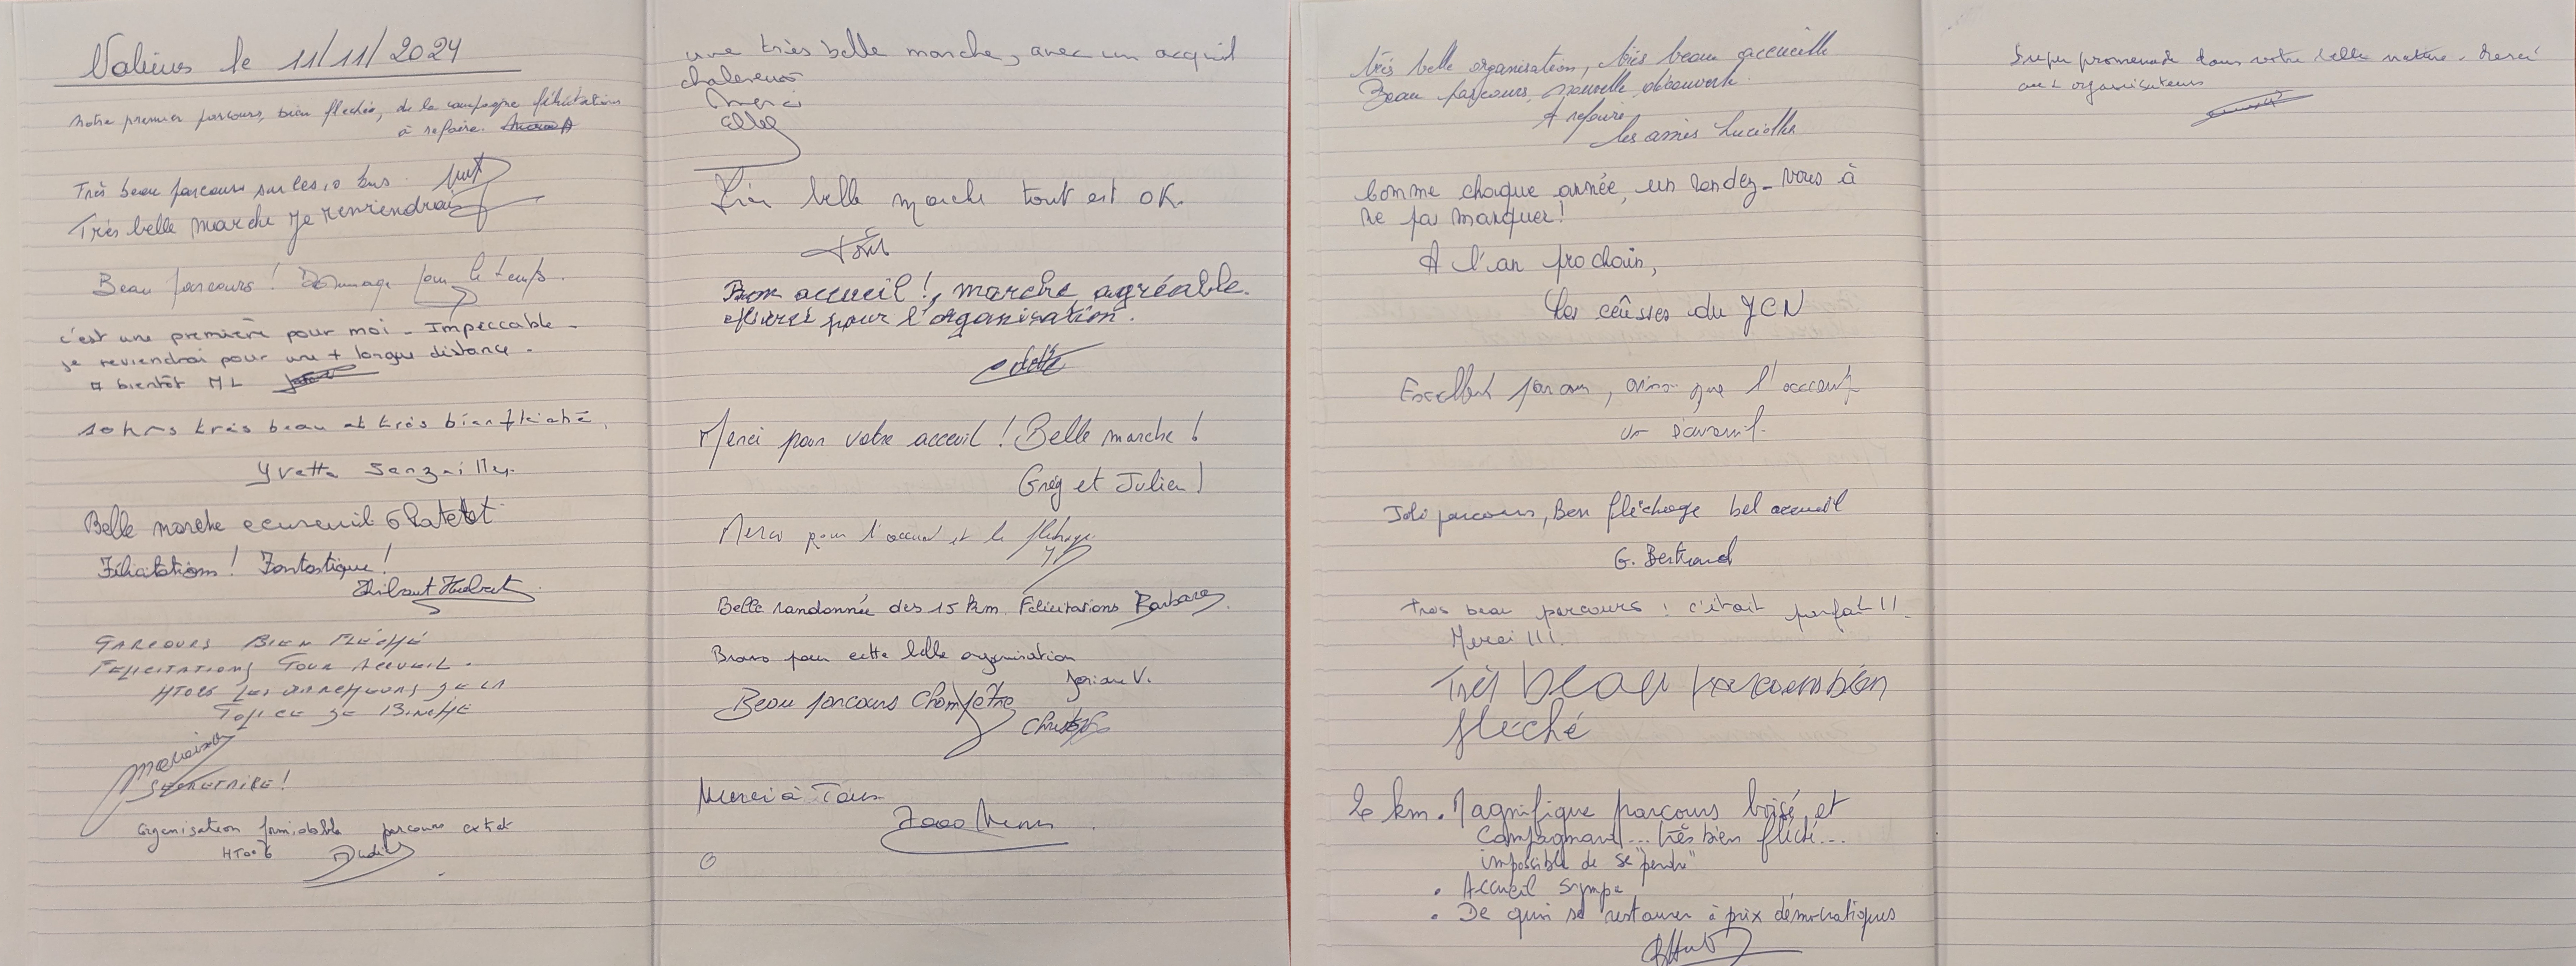 le 11/11/2024
Notre premier parcours, bien fléchés, de la campagne félicitations
à refaire.
Très beau parcours sur les 10 kms
Très belle marche je reviendrai
Beau parcours ! Dommage pour le temps.
c'est une première pour moi - Impeccable -
je reviendrai pour une + longue distance -
A bientôt ML
10 kms très beau et très bien fléché,
Yvette
Belle marche ecureuil Chatelet
Félicitations ! Fantastique !
Thibaut Hubert
PARCOURS BIEN FLÉCHÉ
FELICITATIONS POUR ACCUEIL.
HT026 LES MARCHEURS DE LA
POLICE DE BINCHE
SECRETAIRE !
Organisation formidable parcours extat
HT026
une très belle marche, avec un acquil
chalereuse
Merci
Elle
Très belle marche tout est OK.
Bon accueil !, marche agréable.
Merci pour l'organisation.
Odette
Merci pour votre acceuil ! Belle marche !
Greg et Julien !
Merci pour l'accueil et le fléchage
Belle randonnée des 15 km Félicitations Barbara
Bravo pour cette belle organisation
V.
Beau parcours Champêtre
Merci à Tous
très belle organisation, très beau accueille
Beau parcours, nouvelle découverte
A refaire
les amies Lucielle
Comme chaque année, un rendez-vous à
ne pas manquer !
A l'an prochain,
Les du JCN
Excellent parcours, ainsi que l'accueil
Joli parcours, Bon fléchage bel accueil
G. Bertrand
Très beau parcours ! c'était parfait !!
Merci !!!
Très beau parcours bien
fléché
6 km. Magnifique parcours boisé et
Campagnard... très bien fléché...
impossible de se "perdre"
• Accueil sympa
• De quoi se restaurer à prix démocratiques
Super promenade dans votre belle nature. Merci
aux organisateurs